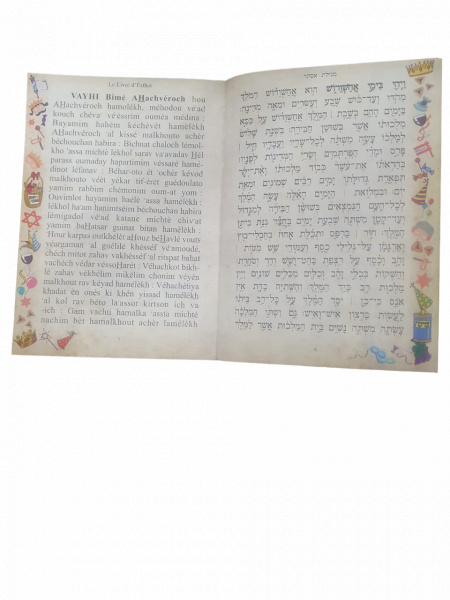 Le Livre d'Esther
VAYHI Bimé AHachvéroch hou
AHachvéroch hamolékh, méhodou vé'ad
kouch chéva' vé'essrim ouméa médina :
Bayamim hahém kéchévét hamélékh
AHachvéroch 'al kissé malkhouto achér
béchouchan habira : Bichnat chaloch lémol-
kho 'assa michté lékhol sarav va'avadav Hél
parass oumaday hapartémim véssaré hamé-
dinot léfanav : Béhar-oto ét 'ochér kévod
malkhouto véét yékar tif-érét guédoulato
yamim rabbim chémonim oum-at yom :
Ouvimlot hayamim haélé 'assa hamélékh :
lékhol ha'am hanimtséim béchouchan habira
lémigadol vé'ad katane michté chiv'at
yamim baHatsar guinat bitan hamélékh :
Hour karpass outkhélét aHouz béHavlé vouts
véargaman 'al guélilé khésséf vé'amoudé,
chéch mitot zahav vakhésséf 'al ritspat bahat
vachéch védar véssoHarét : Véhachkot bikh-
lé zahav vékhélim mikélim chonim véyén
malkhout rav kéyad hamélékh : Véhachétiya
khadat én onés ki khén yissad hamélékh
'al kol rav béto la'assot kirtson ich va
-ich : Gam vachti hamalka 'assta michté
nachim bét hamalkhout achér lamélékh
מגילת אסתר
וַיְהִי בִּימֵי אֲחַשְׁוֵרוֹשׁ הוּא אֲחַשְׁוֵרוֹשׁ הַמֹּלֵךְ
מֵהֹדּוּ וְעַד־כּוּשׁ שֶׁבַע וְעֶשְׂרִים וּמֵאָה מְדִינָה:
בַּיָּמִים הָהֵם כְּשֶׁבֶת ׀ הַמֶּלֶךְ אֲחַשְׁוֵרוֹשׁ עַל כִּסֵּא
מַלְכוּתוֹ אֲשֶׁר בְּשׁוּשַׁן הַבִּירָה: בִּשְׁנַת שָׁלוֹשׁ
לְמָלְכוֹ עָשָׂה מִשְׁתֶּה לְכָל־שָׂרָיו וַעֲבָדָיו חֵיל ׀
פָּרַס וּמָדַי הַפַּרְתְּמִים וְשָׂרֵי הַמְּדִינוֹת לְפָנָיו:
בְּהַרְאֹתוֹ אֶת־עֹשֶׁר כְּבוֹד מַלְכוּתוֹ וְאֶת־יְקָר
תִּפְאֶרֶת גְּדוּלָּתוֹ יָמִים רַבִּים שְׁמוֹנִים וּמְאַת
יוֹם: וּבִמְלוֹאת הַיָּמִים הָאֵלֶּה עָשָׂה הַמֶּלֶךְ
לְכָל־הָעָם הַנִּמְצְאִים בְּשׁוּשַׁן הַבִּירָה לְמִגָּדוֹל
וְעַד־קָטָן מִשְׁתֶּה שִׁבְעַת יָמִים בַּחֲצַר גִּנַּת בִּיתַן
הַמֶּלֶךְ: חוּר ׀ כַּרְפַּס וּתְכֵלֶת אָחוּז בְּחַבְלֵי־בוּץ
וְאַרְגָּמָן עַל־גְּלִילֵי כֶסֶף וְעַמּוּדֵי שֵׁשׁ מִטּוֹת ׀
זָהָב וָכֶסֶף עַל רִצְפַת בַּהַט־וָשֵׁשׁ וְדַר וְסֹחָרֶת:
וְהַשְׁקוֹת בִּכְלֵי זָהָב וְכֵלִים מִכֵּלִים שׁוֹנִים וְיֵין
מַלְכוּת רָב כְּיַד הַמֶּלֶךְ: וְהַשְּׁתִיָּה כַדָּת אֵין
אֹנֵס כִּי־כֵן ׀ יִסַּד הַמֶּלֶךְ עַל כָּל־רַב בֵּיתוֹ
לַעֲשׂוֹת כִּרְצוֹן אִישׁ־וָאִישׁ: גַּם וַשְׁתִּי הַמַּלְכָּה
עָשְׂתָה מִשְׁתֵּה נָשִׁים בֵּית הַמַּלְכוּת אֲשֶׁר לַמֶּלֶךְ